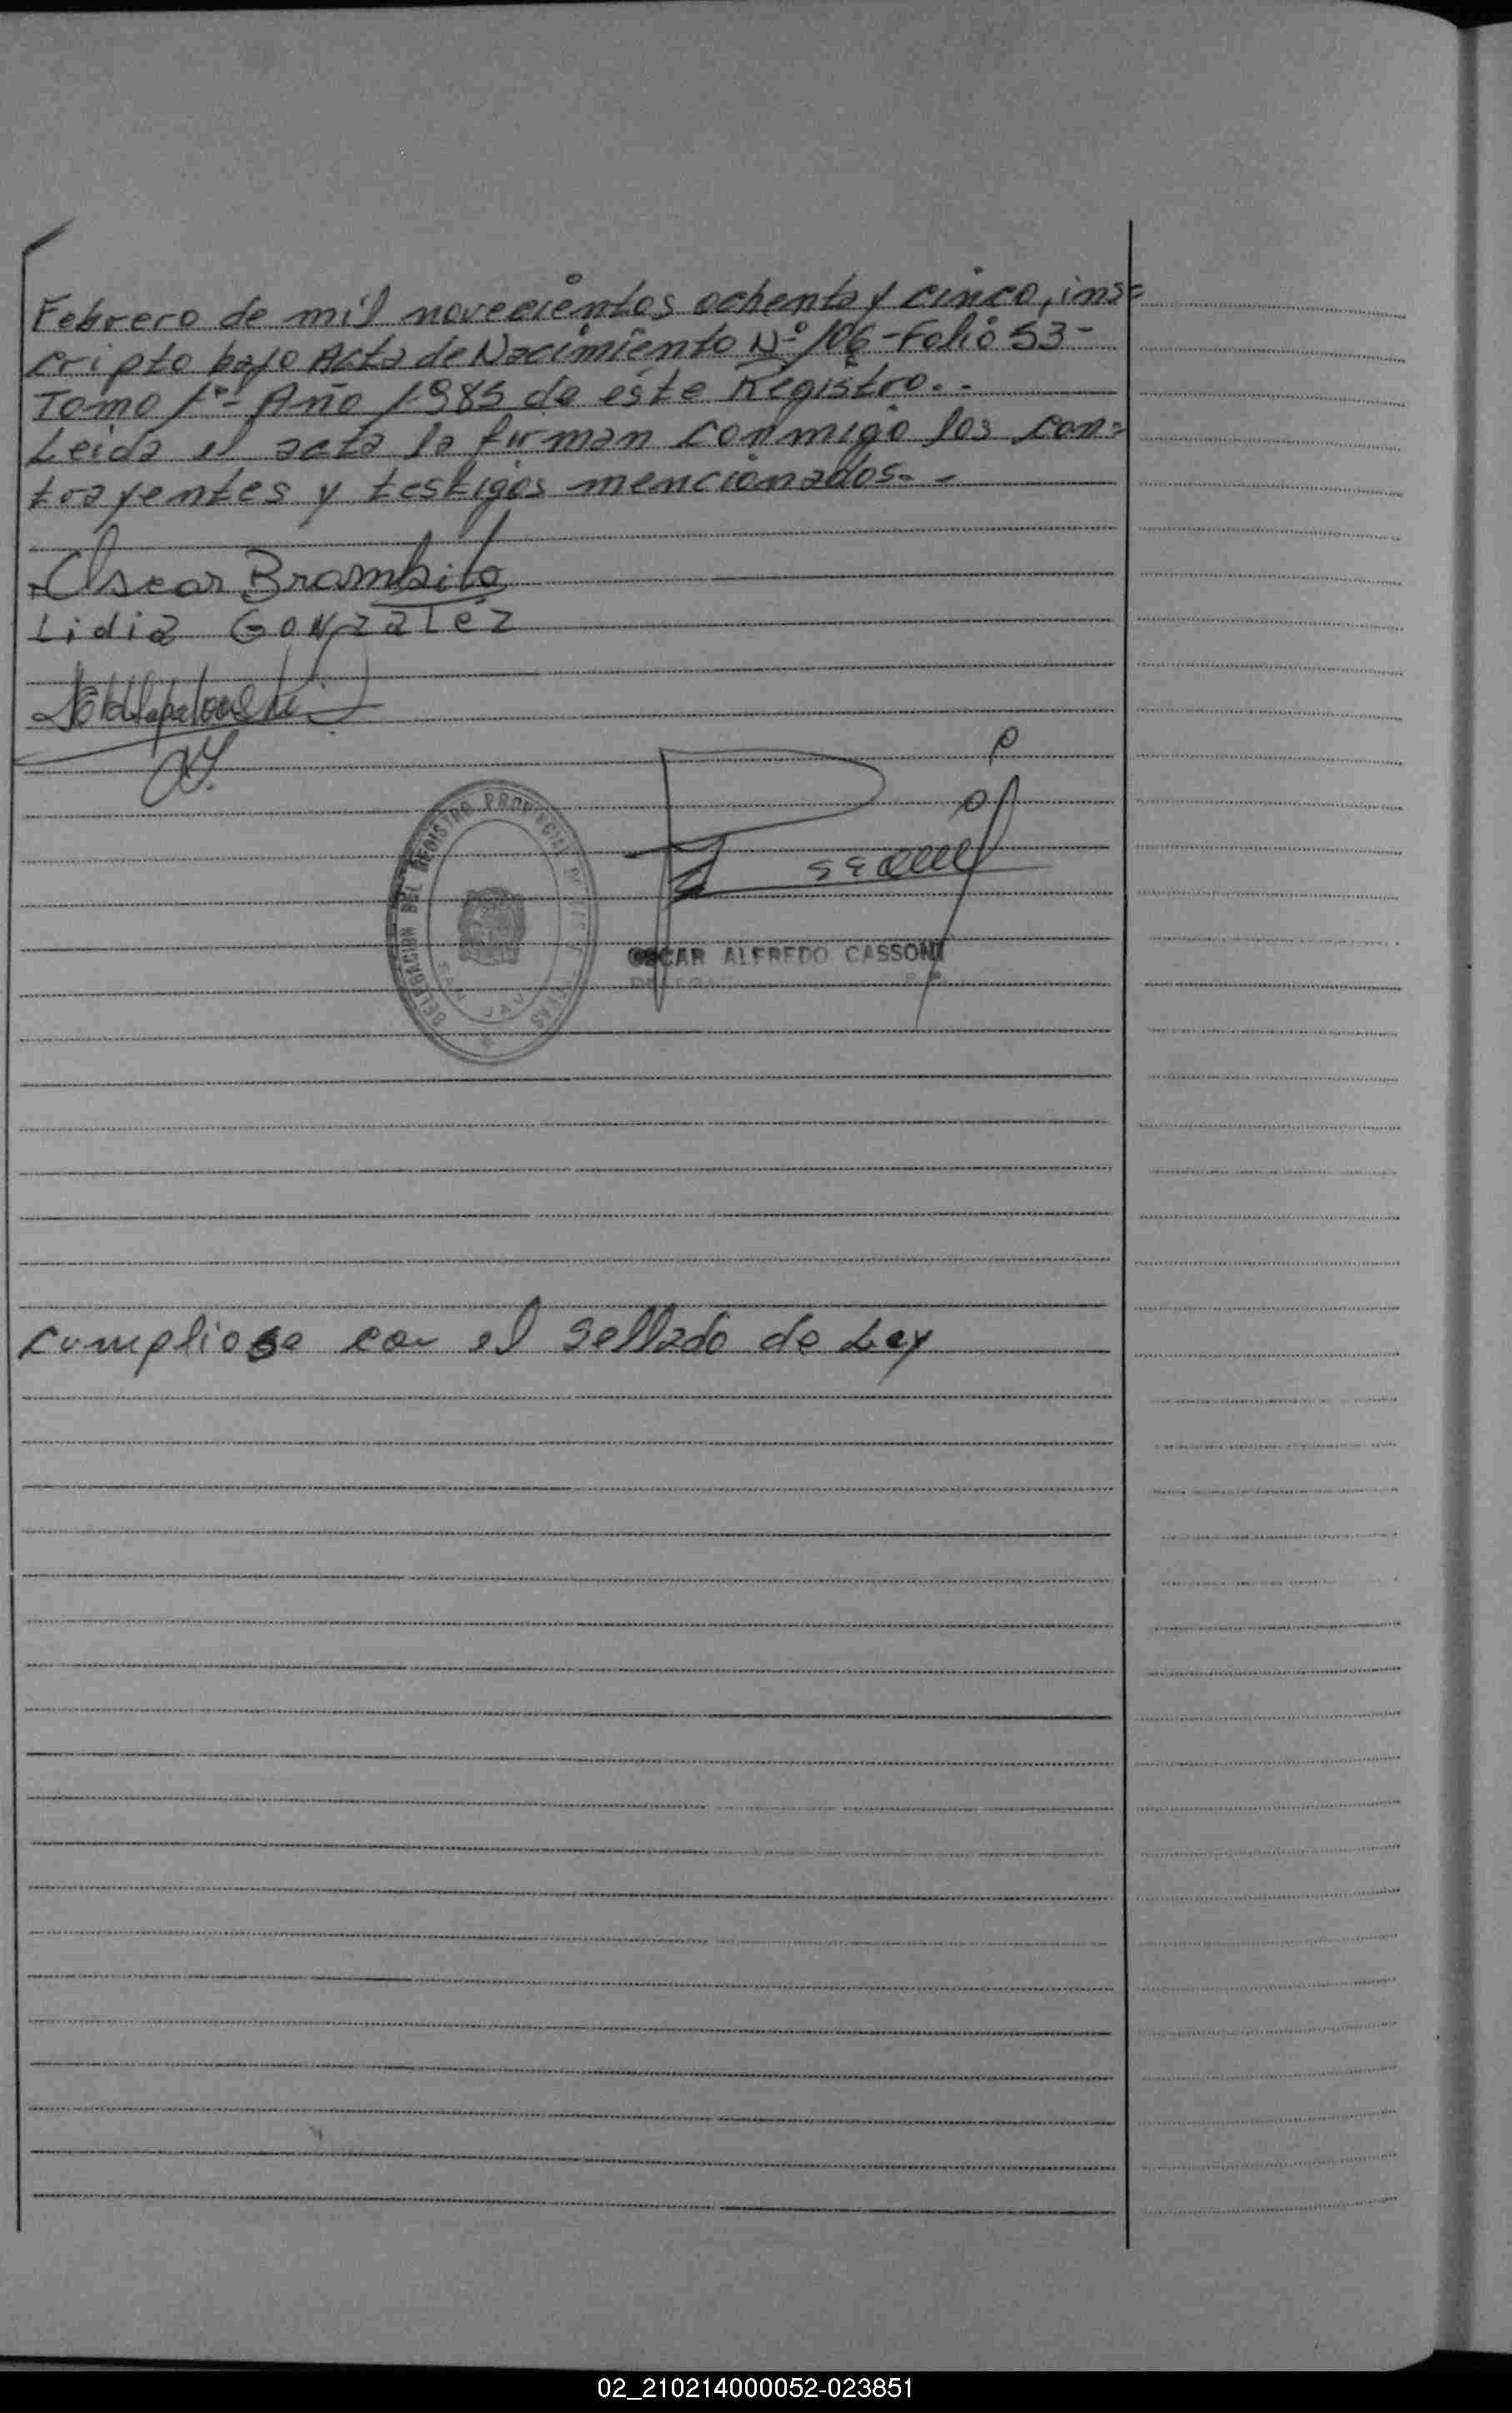 Febrero de mil novecientos ochenta y cinco, ins=
cripto bajo Acta de Nacimiento Nº 106 - Folio 53 -
Tomo 1º - Año 1985 de este Registro. -
Leida el acta la firman conmigo los con=
trayentes y testigos mencionados. -
Oscar Brambila
Lidia Gonzalez
DELEGACION DEL REGISTRO PROVINCIAL
SAN JAV
OSCAR ALFREDO CASSONI
Cumpliose con el Sellado de Ley
02_210214000052-023851